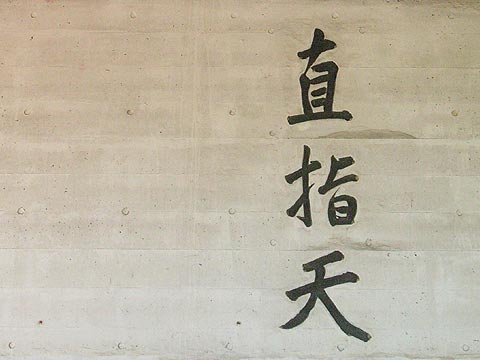 直指天